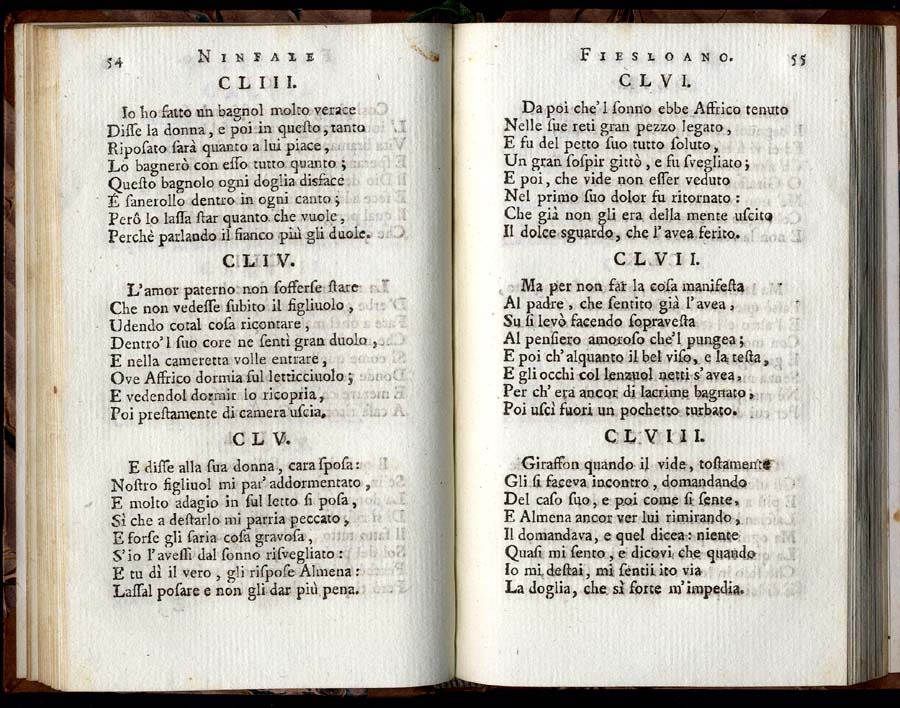 54 NINFALE
CLIII.
Io ho fatto un bagnol molto verace
Diſſe la donna, e poi in queſto, tanto
Ripoſato ſarà quanto a lui piace,
Lo bagnerò con eſſo tutto quanto;
Queſto bagnolo ogni doglia disface
E ſanerollo dentro in ogni canto;
Però lo laſſa ſtar quanto che vuole,
Perchè parlando il fianco più gli duole.
CLIV.
L'amor paterno non ſofferſe ſtare
Che non vedeſſe ſubito il figliuolo,
Udendo cotal coſa ricontare,
Dentro'l ſuo core ne ſenti gran duolo,
E nella cameretta volle entrare,
Ove Affrico dormia ſul letticciuolo;
E vedendol dormir lo ricopria,
Poi preſtamente di camera uſcia.
CLV.
E diſſe alla ſua donna, cara ſpoſa:
Noſtro figliuol mi par' addormentato,
E molto adagio in ſul letto ſi poſa,
Sì che a deſtarlo mi parria peccato,
E forſe gli ſaria coſa gravoſa,
S'io l'aveſſi dal ſonno riſvegliato:
E tu dì il vero, gli riſpoſe Almena:
Laſſal poſare e non gli dar più pena.
FIESLOANO. 55
CLVI.
Da poi che'l ſonno ebbe Affrico tenuto
Nelle ſue reti gran pezzo legato,
E fu del petto ſuo tutto ſoluto,
Un gran ſoſpir gittò, e fu ſvegliato;
E poi, che vide non eſſer veduto
Nel primo ſuo dolor fu ritornato:
Che già non gli era della mente uſcito
Il dolce sguardo, che l'avea ferito.
CLVII.
Ma per non far la coſa manifeſta
Al padre, che ſentito già l'avea,
Su ſi levò facendo ſopraveſta
Al penſiero amoroſo che'l pungea;
E poi ch'alquanto il bel viſo, e la teſta,
E gli occhi col lenzuol netti s'avea,
Per ch'era ancor di lacrime bagnato,
Poi uſcì fuori un pochetto turbato.
CLVIII.
Giraffon quando il vide, toſtamente
Gli ſi faceva incontro, domandando
Del caſo ſuo, e poi come ſi ſente,
E Almena ancor ver lui rimirando,
Il domandava, e quel dicea: niente
Quaſi mi ſento, e dicovi che quando
Io mi deſtai, mi ſentii ito via
La doglia, che sì forte m'impedia.